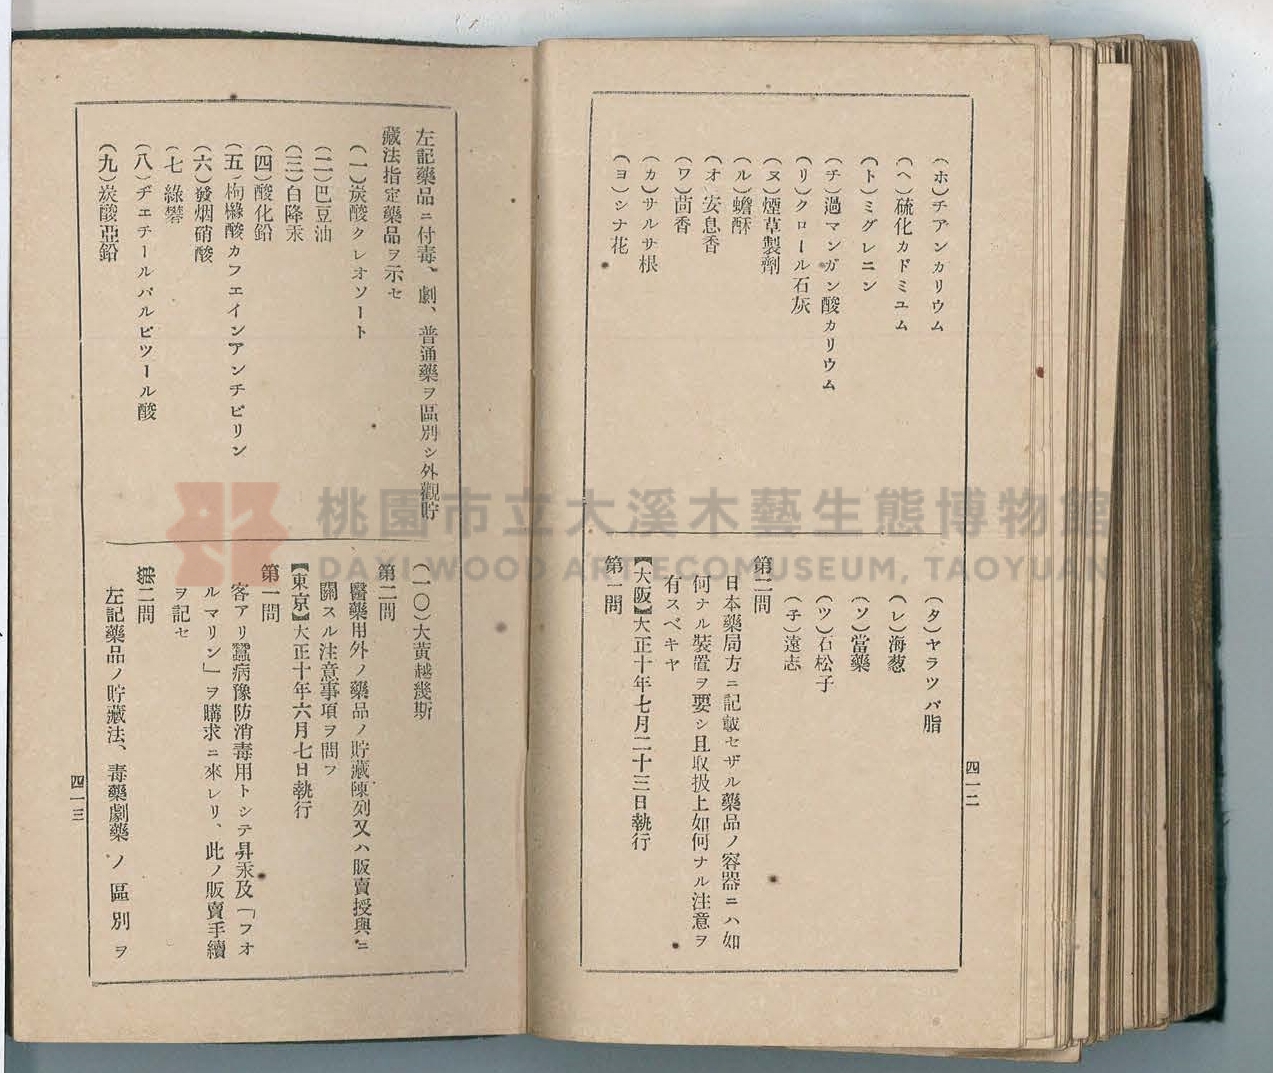 (ホ)チアンカリウム
(ヘ)硫化カドミユム
(ト)ミグレニン
(チ)過マンガン酸カリウム
(リ)クロール石灰
(ヌ)煙草製劑
(ル)蟾酥
(オ)安息香
(ワ)茴香
(カ)サルサ根
(ヨ)シナ花
(タ)ヤラツパ脂
(レ)海葱
(ソ)當藥
(ツ)石松子
(子)遠志
第二問
日本藥局方ニ記載セザル藥品ノ容器ニハ如
何ナル裝置ヲ要シ且取扱上如何ナル注意ヲ
有スベキヤ
【大阪】大正十年七月二十三日執行
第一問
四一二
左記藥品ニ付毒、劇、普通藥ヲ區別シ外觀貯
藏法指定藥品ヲ示セ
(一)炭酸クレオソート
(二)巴豆油
(三)白降汞
(四)酸化鉛
(五)枸櫞酸カフエインアンチピリン
(六)發烟硝酸
(七 綠礬
(八)ヂエチールバルビツール酸
(九)炭酸亞鉛
(一〇)大黃越幾斯
第二問
醫藥用外ノ藥品ノ貯藏陳列又ハ販賣授與ニ
關スル注意事項ヲ問フ
【東京】大正十年六月七日執行
第一問
客アリ蠶病豫防消毒用トシテ昇汞及「フオ
ルマリン」ヲ購求ニ來レリ、此ノ販賣手續
ヲ記セ
第二問
左記藥品ノ貯藏法、毒藥劇藥ノ區別ヲ
四一三
桃園市立大溪木藝生態博物館
DAXI WOOD ART ECOMUSEUM, TAOYUAN